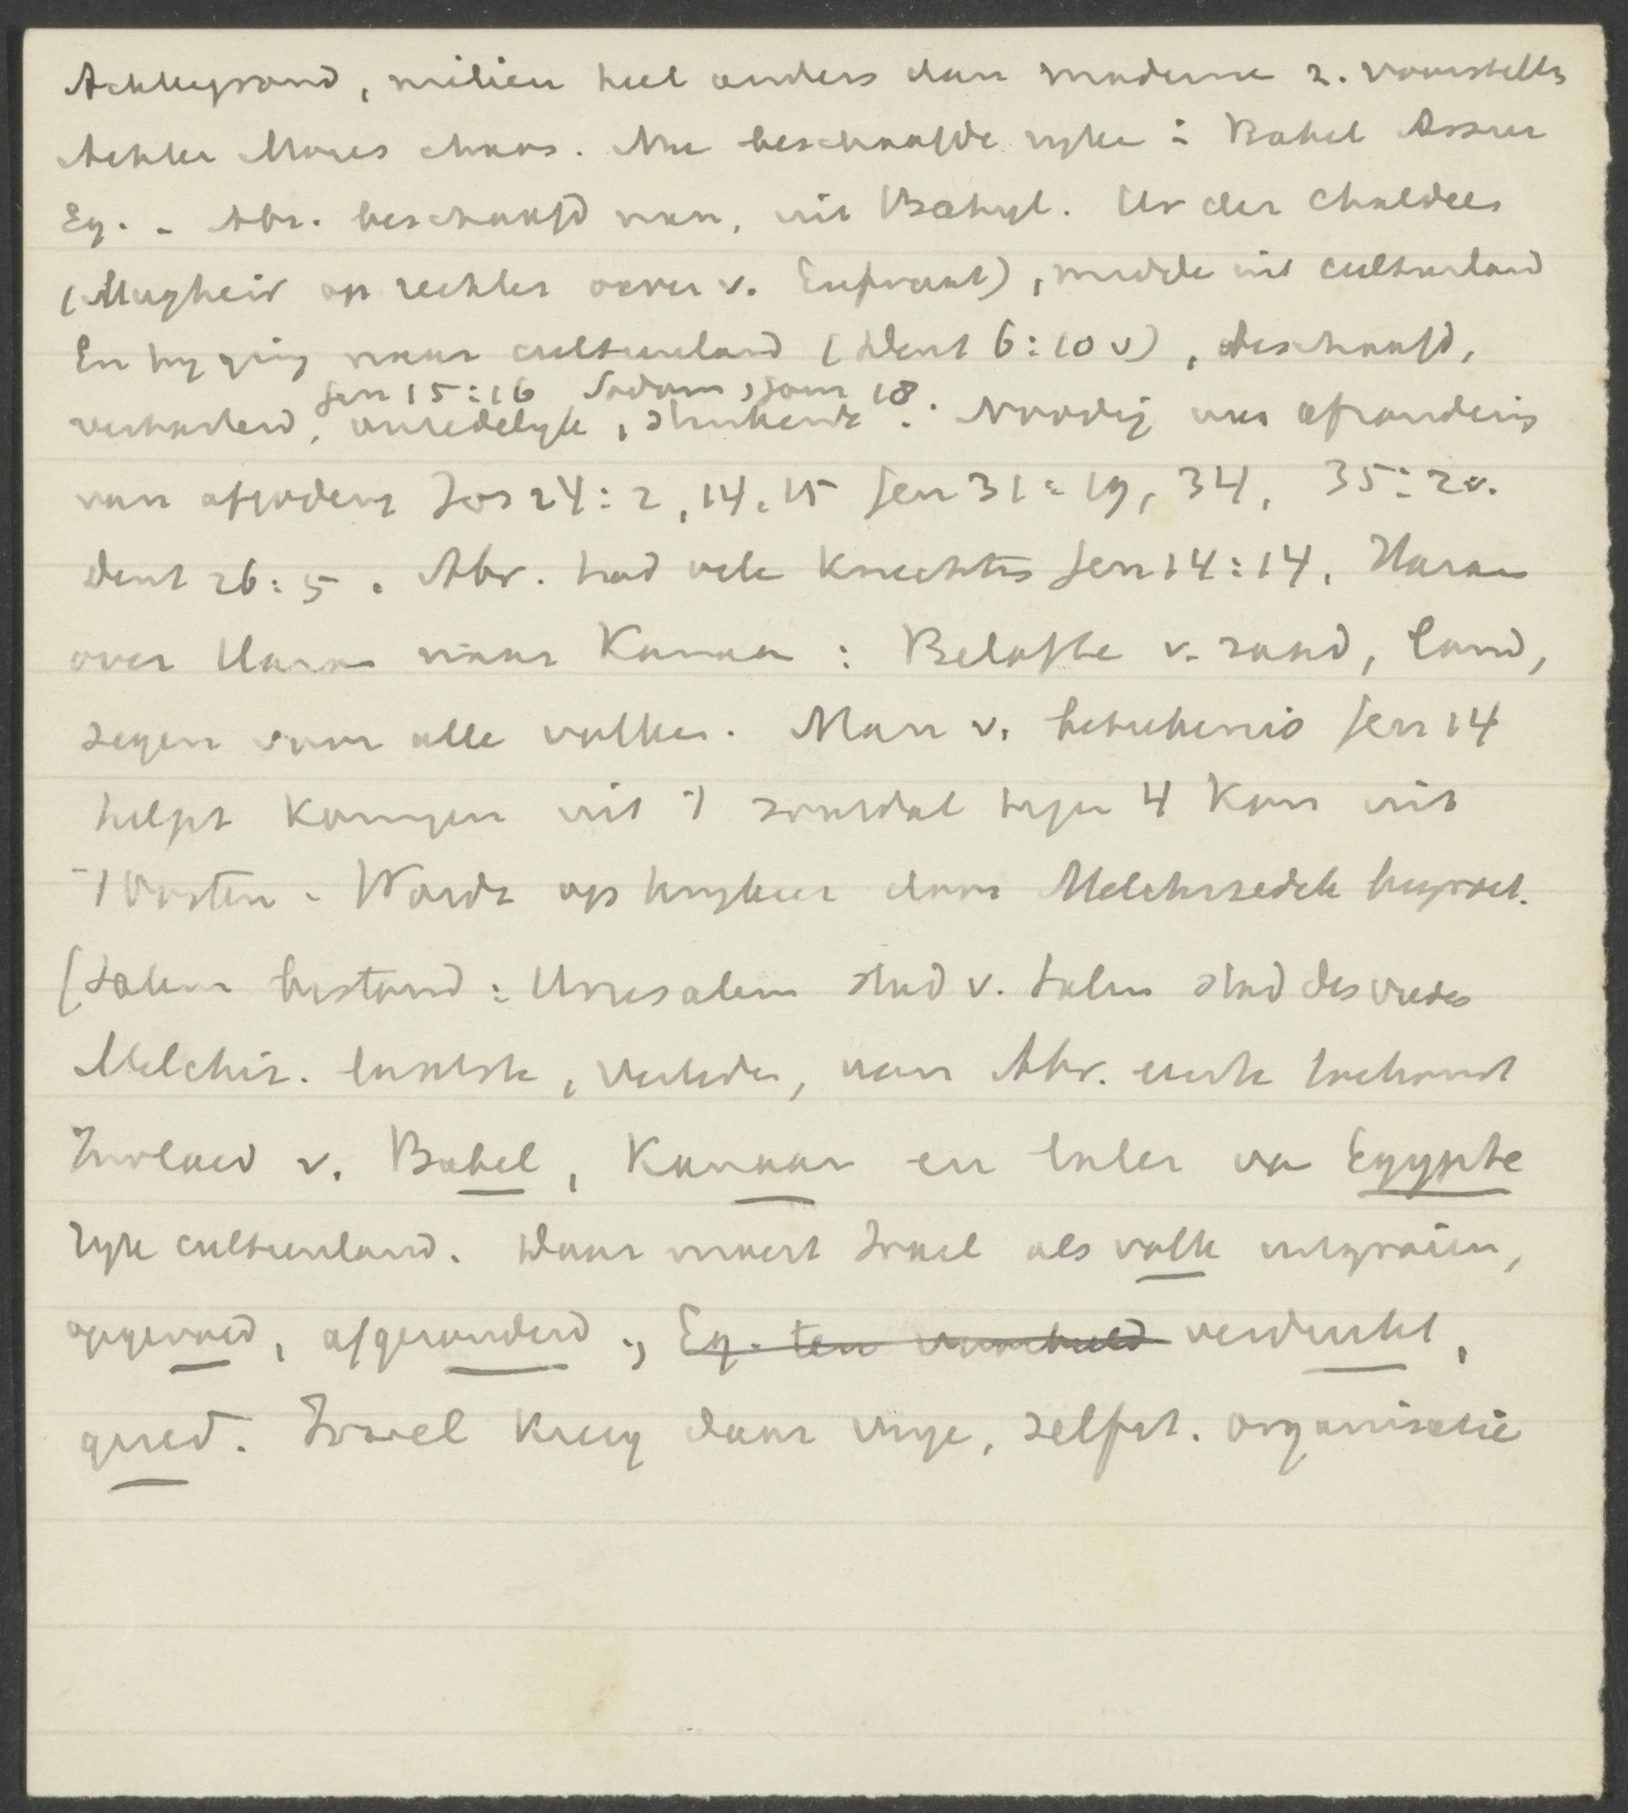 Achtergrond, milieu heel anders dan moderne z. voorstellen
Achter Mozes chaos. Nu beschaafde ryken: Babel Assur
Eg. - Abr. beschaafd man, uit Babyl. Ur der Chaldees
(Mugheir op rechter oever v. Eufraat), midde uit cultuurland
En hy ging naar cultuurland (Deut 6:10 v), beschaafd,
Gen 15:16 Sodom, Gom 18.
verharderd, onzedelyk, stinkende. Noodig was afzondering
van afgodery Joz 24:2, 14, 15 Gen 31:19, 34, 35:2v.
Deut 26:5. Abr. had vele knechten Gen 14:14. Haran
over Haran naar Kanaan: Belofte v. zaad, land,
zegen voor alle volken. Man v. beteekenis Gen 14
helpt Koningen uit 't zoutdal tegen 4 Kon uit
't Oosten. Wordt op terugkeer door Melchizedek begroet.
(Salem bestond: Urusalem stad v. Salem stad des vredes
Melchiz. laatste, van Abr. eerste
Invloed v. Babel, Kanaan en later van Egypte
ryk cultuurland. Daar moest Israel als volk uitgroeien,
opgevoed, afgezonderd., Eg. ten verdrukt,
gered. Israel kreeg daar vrye, zelfst. organisatie